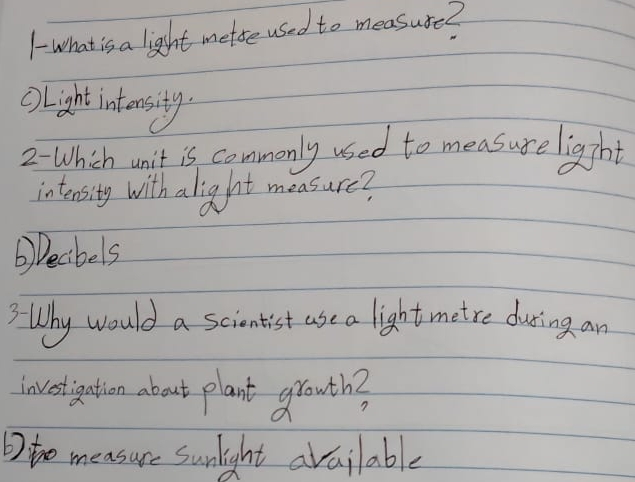 1-What is a light metre used to measure?
c) Light intensity.
2-Which unit is commonly used to measure light
intensity with a light measure?
b) Decibels
3-Why would a scientist use a light metre during an
investigation about plant growth?
b) to measure sunlight available